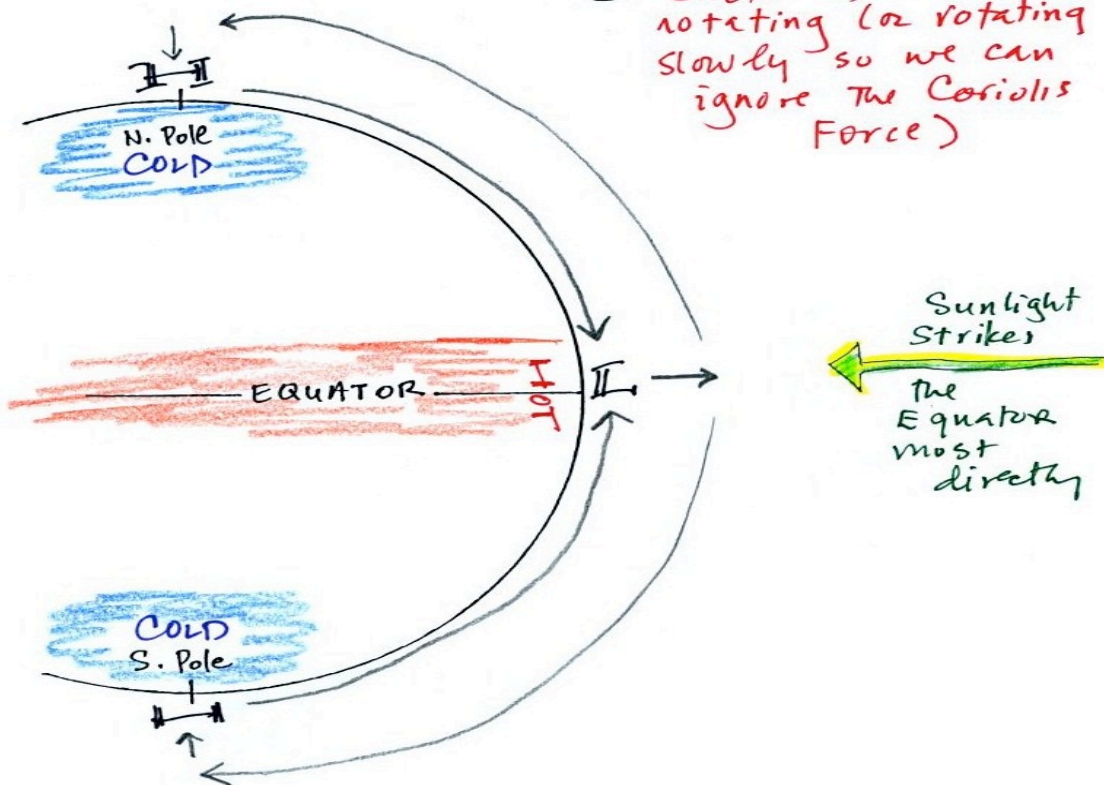 rotating (or rotating
slowly so we can
ignore the Coriolis
Force)
H
N. Pole
COLD
Sunlight
Strikes
the
Equator
most
directly
EQUATOR
HOT
L
COLD
S. Pole
H